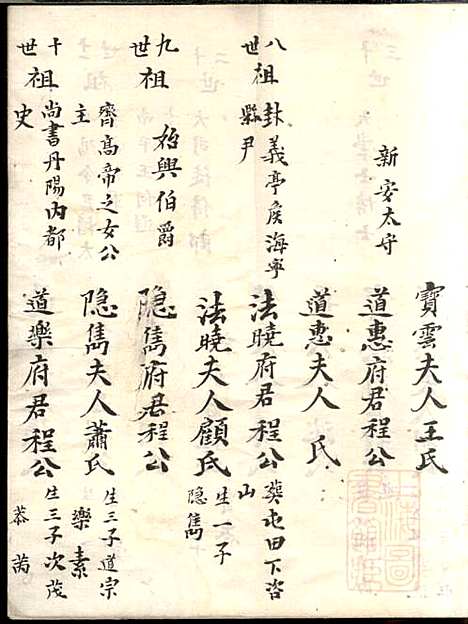 寶雲夫人王氏
新安太守
道惠府君程公
道惠夫人 氏
八世祖 封義亭侯海寧縣尹
法曉府君程公 葬屯田下咨山
法曉夫人顧氏 生一子隐雋
九世祖 始興伯爵
隐雋府君程公
齊高帝之女公主
隐雋夫人蕭氏 生三子道宗 樂 素
十世祖 尚書丹陽内都史
道樂府君程公 生三子次茂 恭 茵